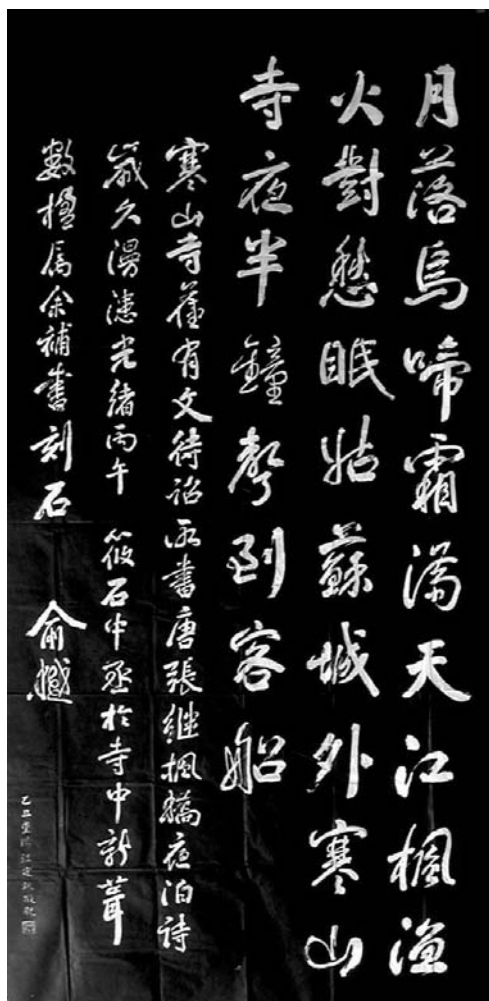 月落烏啼霜滿天江楓漁
火對愁眠姑蘇城外寒山
寺夜半鐘聲到客船
寒山寺舊有文待詔所書唐張繼楓橋夜泊詩
歲久漫漶光緒丙午 筱石中丞於寺中新葺
數楹属余補書刻石 俞樾